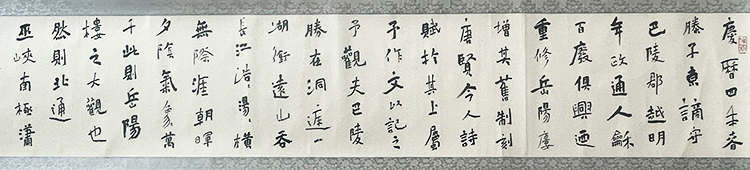 慶曆四年春
滕子京謫守
巴陵郡越明
年政通人龢
百廢俱興迺
重修岳陽廔
增其舊制刻
唐賢今人詩
賦於其上屬
予作文以記之
予觀夫巴陵
勝在洞庭一
湖銜遠山吞
長江浩〻湯〻橫
無際涯朝暉
夕陰氣象萬
千此則岳陽
樓之大觀也
然則北通
巫峽南極瀟